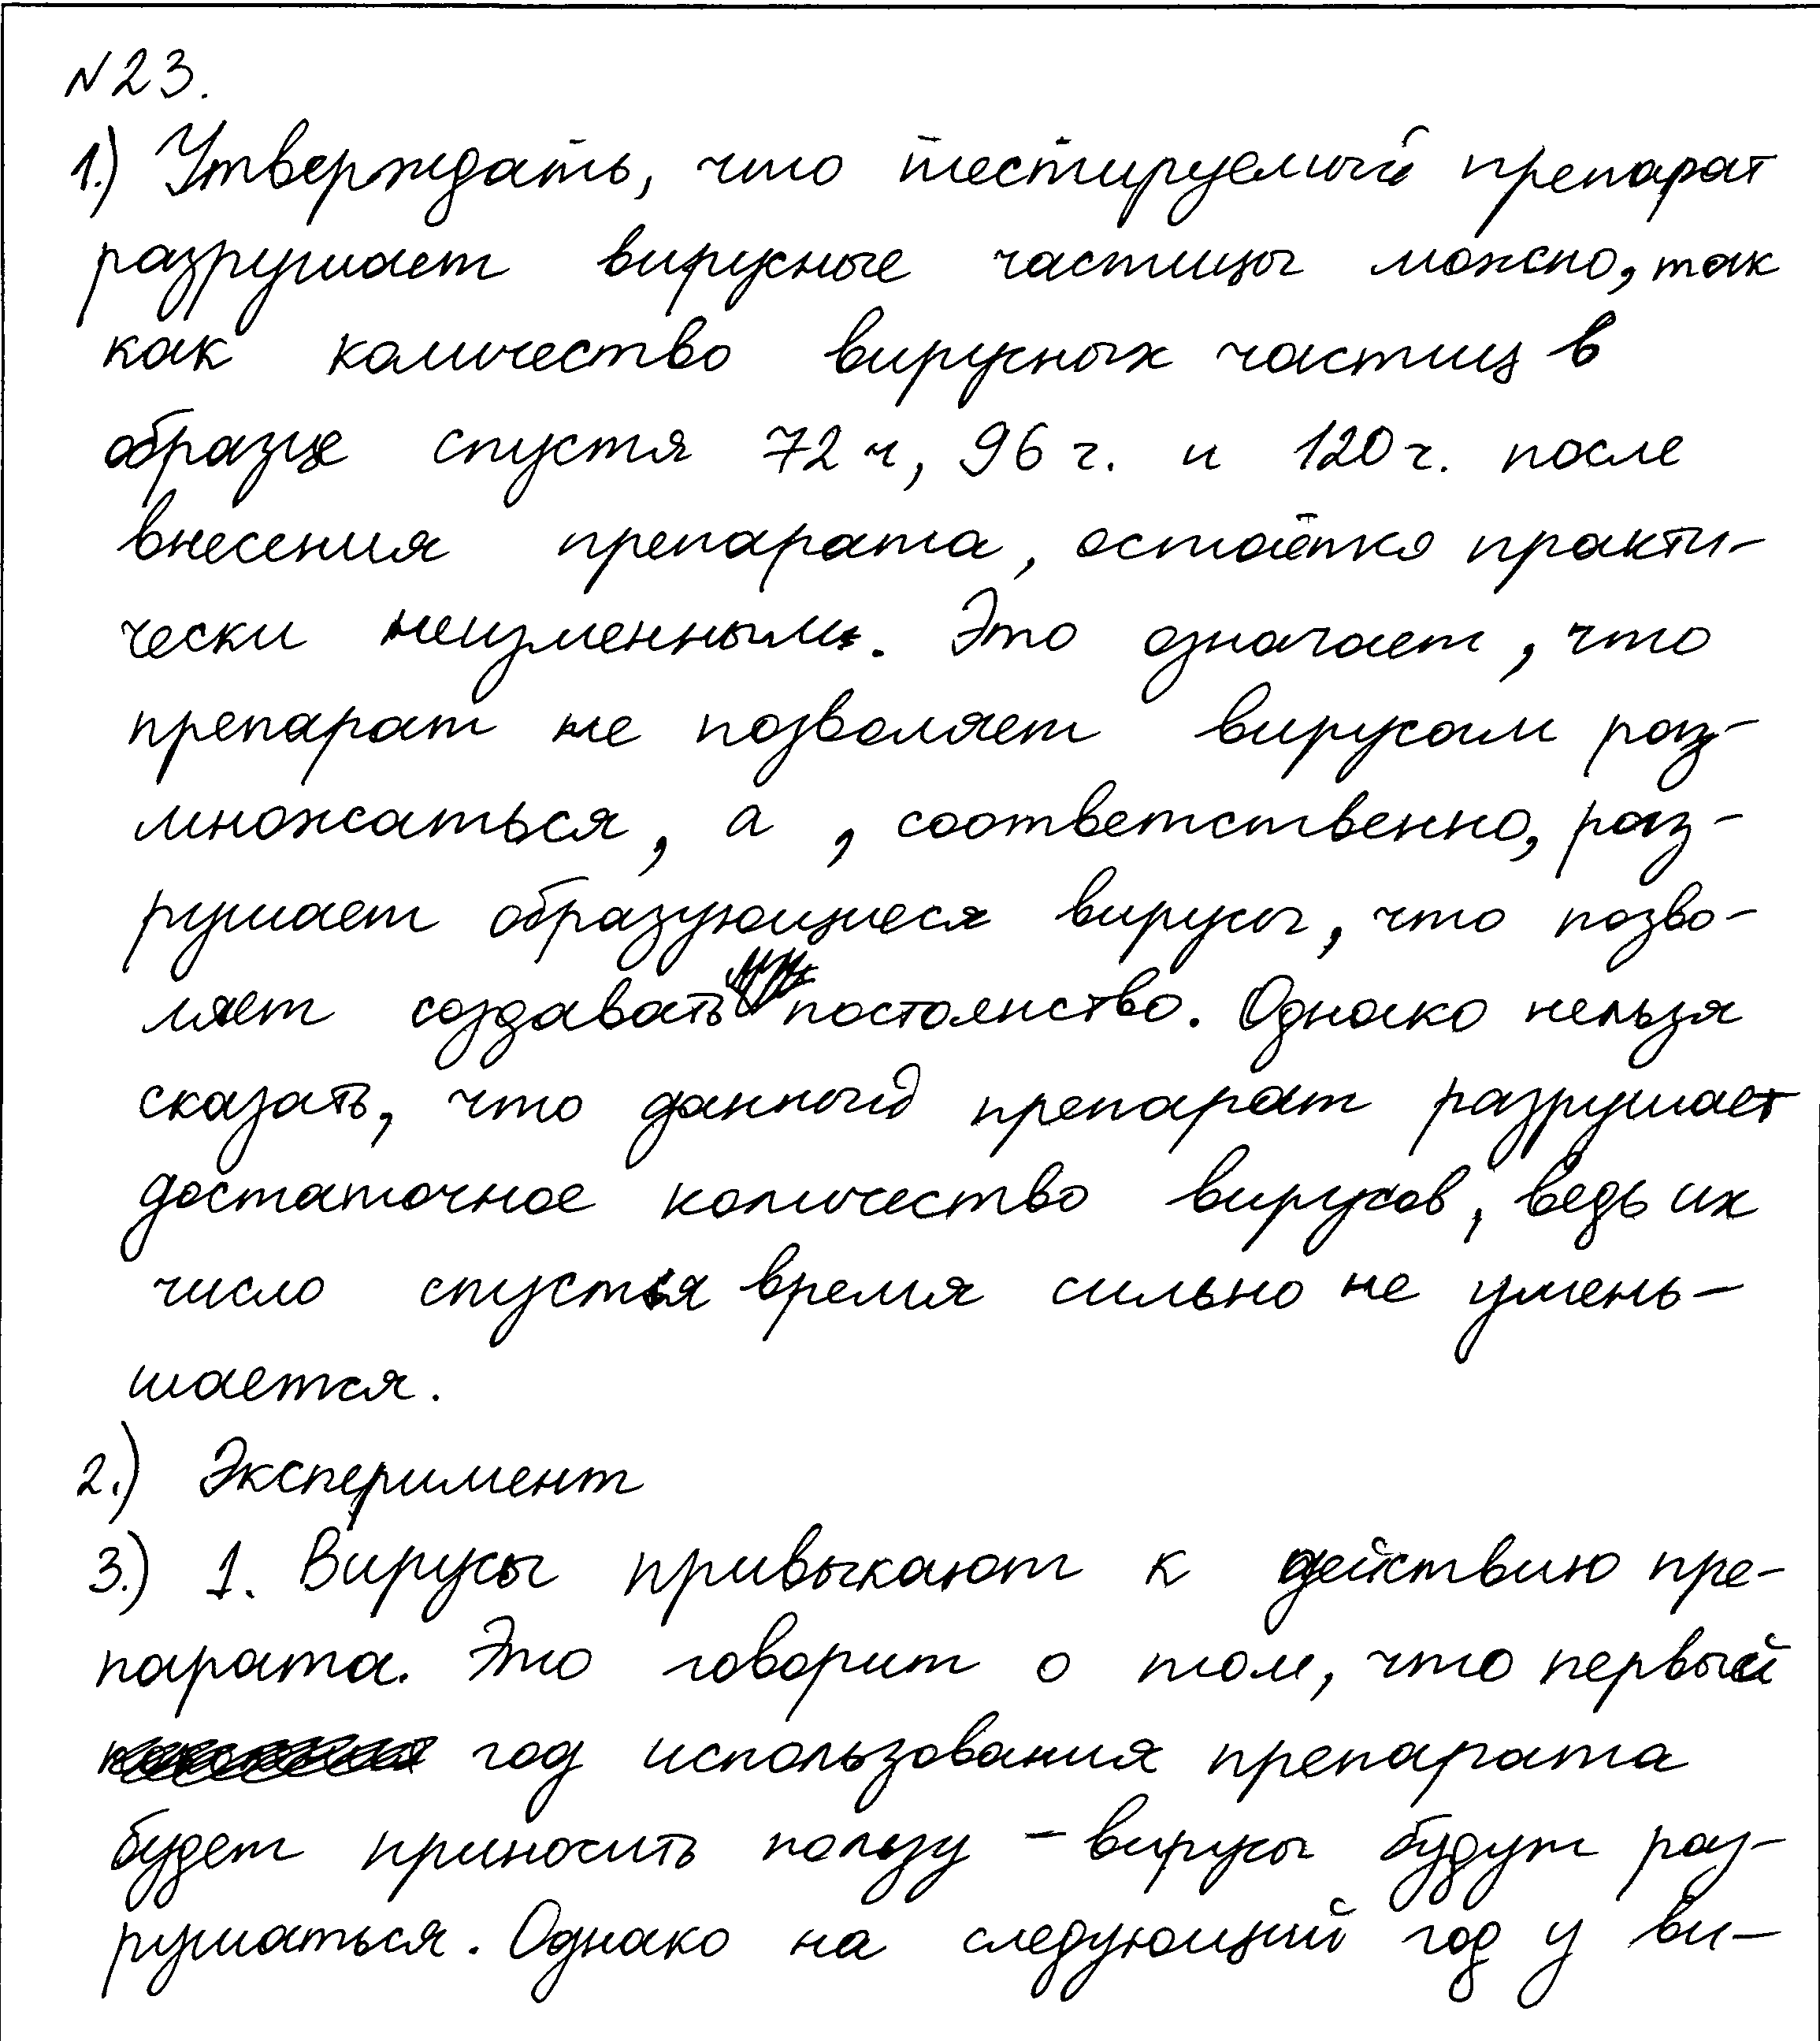 N23.
1.) Утверждать, что тестируемый препарат
разрушает вирусные частицы можно, так
как количество вирусных частиц в
образце спустя 72 ч, 96 ч. и 120 ч. после
внесения препарата, остаётся практи-
чески неизменным. Это означает, что
препарат не позволяет вирусам раз-
множаться, а, соответственно, раз-
рушает образующиеся вирусы, что позво-
ляет создавать постоянство. Однако нельзя
сказать, что данный препарат разрушает
достаточное количество вирусов, ведь их
число спустя время сильно не умень-
шается.
2.) Эксперимент
3.) 1. Вирусы привыкают к действию пре-
парата. Это говорит о том, что первый
год использования препарата
будет приносить пользу - вирусы будут раз-
рушаться. Однако на следующий год у ви-